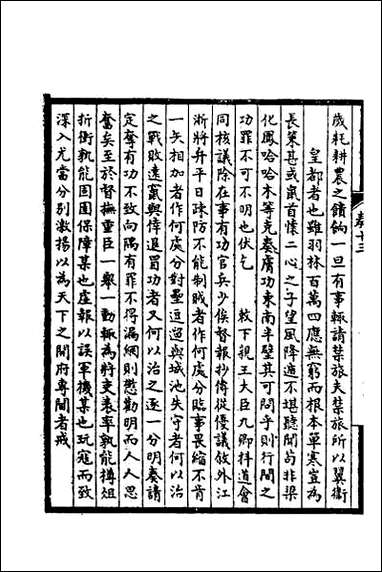 歲耗耕農之餽餉一旦有事輒請禁旅夫禁旅所以翼衛
皇都者也雖羽林百萬四應無窮而根本單寒豈為
長策甚或鼠首懷二心之子望風降遁不堪聽聞茍非梁
化鳳哈哈木等克奏膚功東南半壁其可問乎則行間之
功罪不可不明也伏乞 敕下親王大臣九卿科道會
同核議除在事有功官兵少俟督報抄傳從優議敘外江
浙將弁平日疎防不能制賊者作何處分臨事畏縮不肯
一矢相加者作何處分對壘逗遛與城池失守者何以治
之戰敗遠竄與偉退冒功者又何以治之逐一分明奏請
定奪有功不致向隅有罪不得漏網則懲勸明而人人思
奮矣至於督撫重臣一舉一動輒為將吏表率孰能樽俎
折衝孰能固圉保障某也虛報以誤軍機某也玩寇而致
深入尤當分別激揚以為天下之開府專閫者戒
卷十三